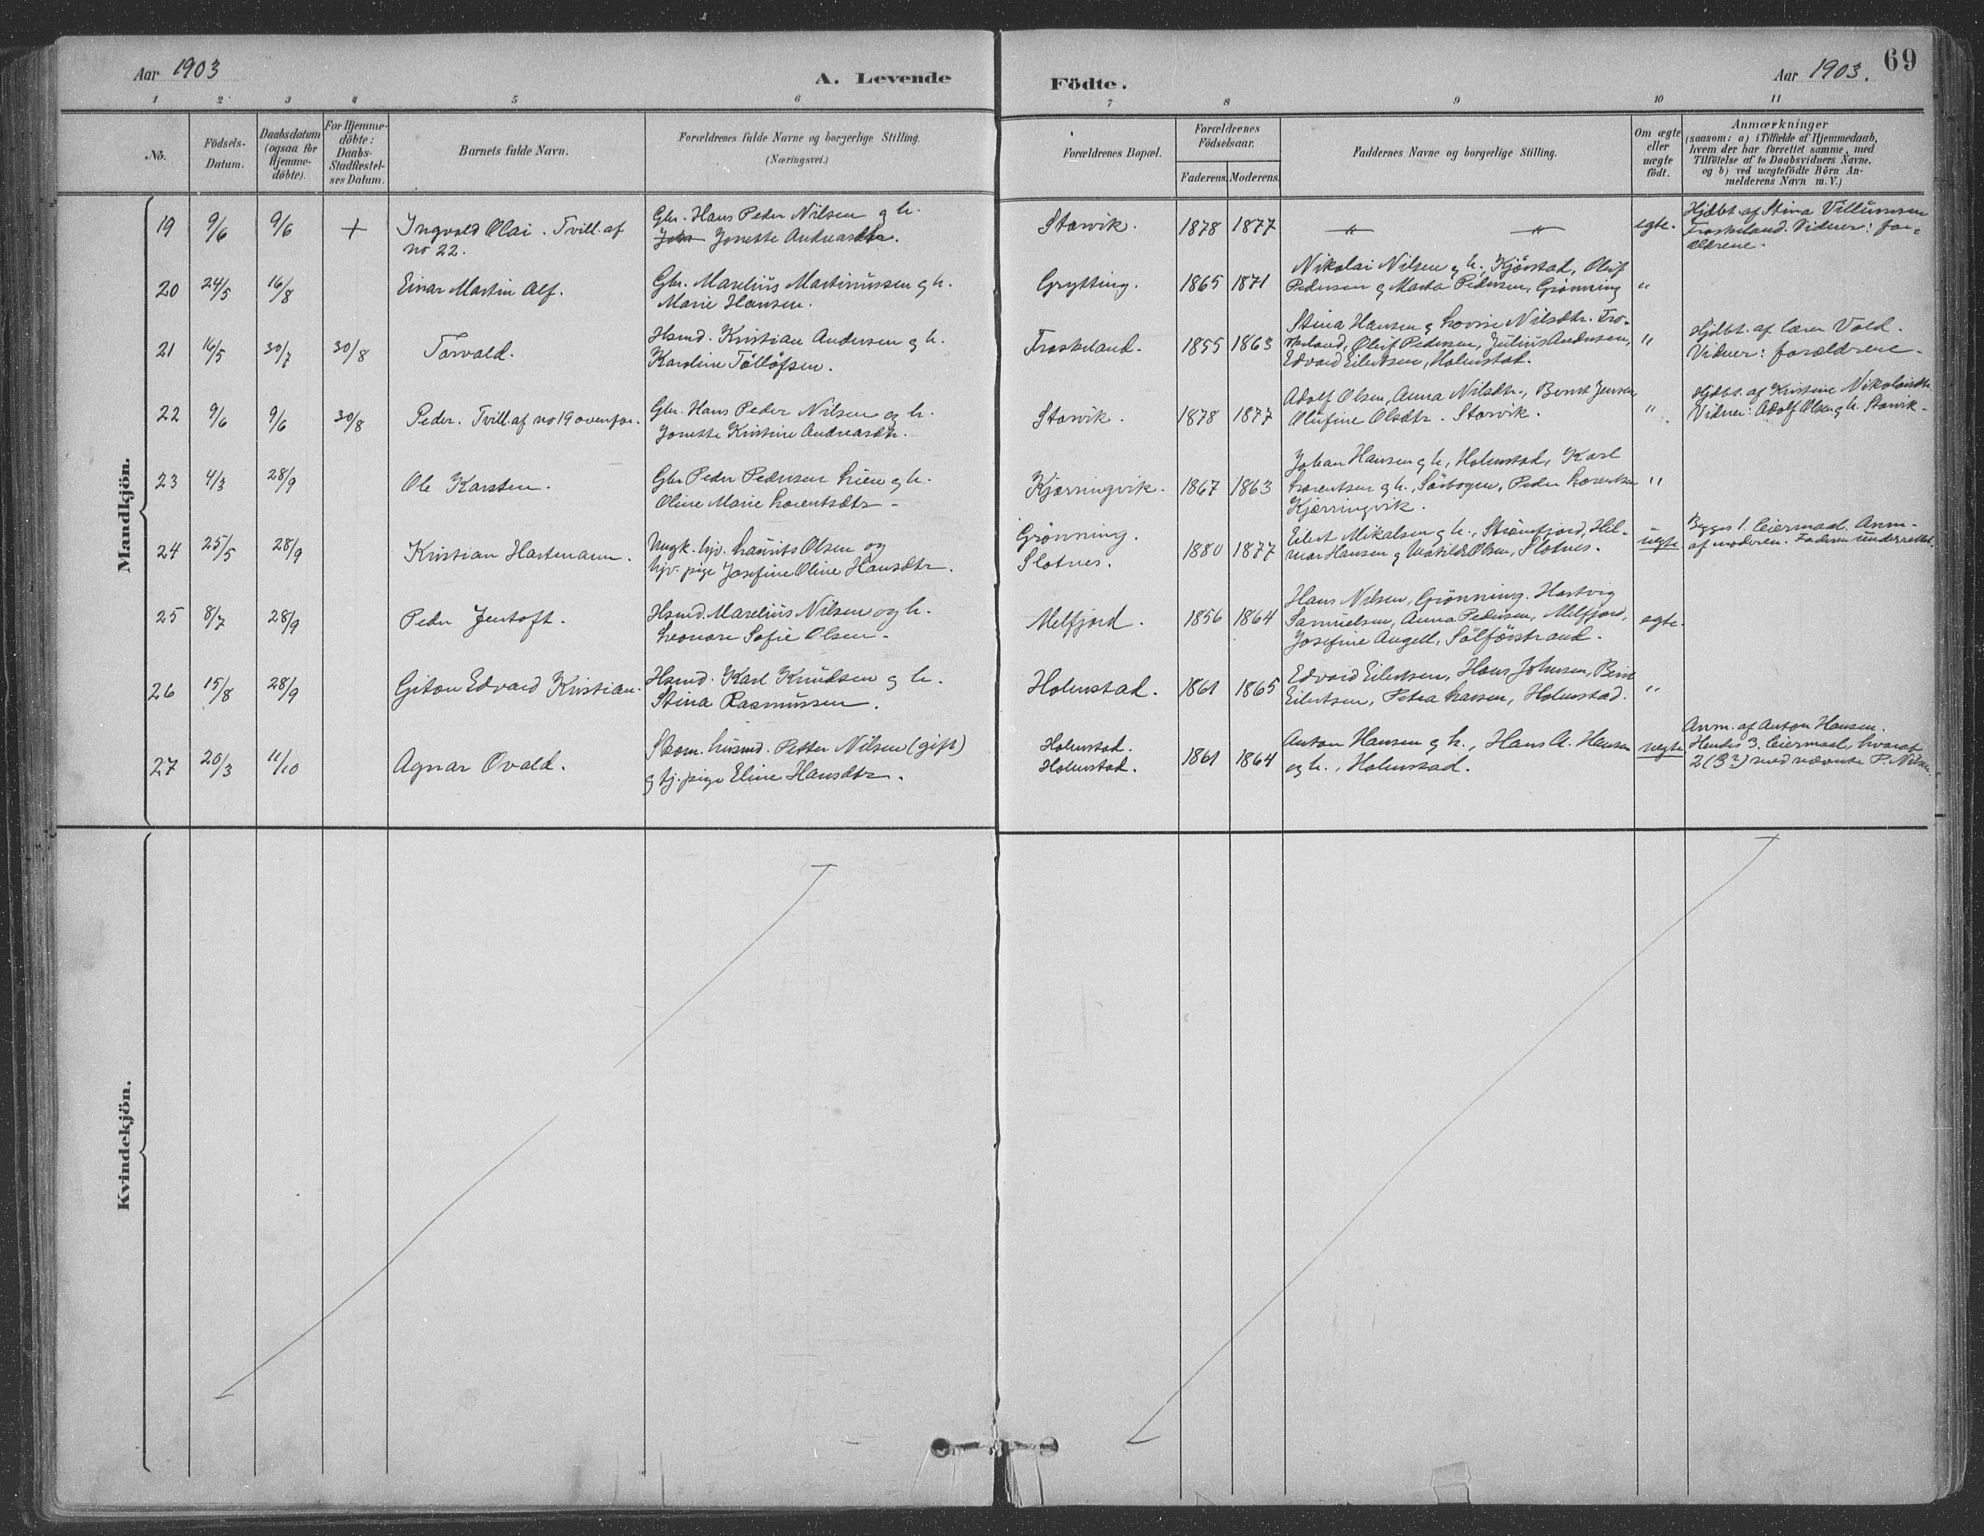 69
Aar 1903
A. Levende
Födte.
Aar 1903.
1 2 3 4 5 6 7 8 9 10 11
No.
Födsels-
Datum.
Daabsdatum
(ogsaa for
Hjemme-
döbte).
For Hjemme-
döbte:
Daabs-
Stadfæstel-
ses Datum.
Barnets fulde Navn.
Forældrenes fulde Navne og borgerlige Stilling.
(Næringsvei.)
Forældrenes Bopæl.
Forældrenes
Födselsaar.
Faderens. Moderens.
Faddernes Navne og borgerlige Stilling.
Om ægte
eller
uægte
födt.
Anmærkninger
(saasom: a) i Tilfælde af Hjemmedaab,
hvem der har forrettet samme, med
Tilföielse af to Daabsvidners Navne.
og b) ved uægtefödte Börn An-
melderens Navn m. V.)
Mandkjön.
19 9/6 9/6 + Ingvald Olai. Tvill. af
no 22.
Gbr. Hans Peder Nilsen og h.
Jonette Andreasdtr.
Storvik. 1878 1877 〃 〃 egte.
Hjdbt. af Stina Villumsen
Froskeland. Vidner: for-
ældrene.
20 24/5 16/8 Einar Martin Alf.
Gbr. Marelius Martinussen og h.
Marie Hansen.
Grytting. 1865 1871
Nikolai Nilsen og h., Kjörstad, Oluf
Pedersen og Marta Pedersen, Grönning
"
21 16/5 30/7 30/8 Torvald.
Hsmd. Kristian Andersen og h.
Karoline Tollöfsen.
Froskeland. 1855 1863
Stina Hansen og Lovise Nilsdtr. Fro-
skeland, Oluf Pedersen, Julius Andersen,
Edvard Eilertsen, Holmstad.
"
Hjdbt. af lærer Vold.
Vidner: forældrene.
22 9/6 9/6 30/8 Peder. Tvill. af no 19 ovenfor.
Gbr. Hans Peder Nilsen og h.
Jonette Kristine Andreasdtr.
Storvik. 1878 1877
Adolf Olsen, Anna Nilsdtr., Bernt Jensen,
Olufine Olsdtr. Storvik.
"
Hjdbt. af Kristine Nikolaisdtr.
Vidner: Adolf Olsen og h. Storvik.
23 4/3 28/9 Ole Karsten.
Gbr. Peder Pedersen Lien og h.
Oline Marie Lorentsdtr
Kjærringvik. 1867 1863
Johan Hansen og h., Holmstad, Karl
Lorentsen og h., Sörbogen, Peder Lorentsen
Kjærringvik.
"
24 25/5 28/9 Kristian Hartmann.
Ungk. hjv. Laurits Olsen og
hjv. pige Josefine Oline Hansdtr.
Grönning.
Slotnes.
1880 1877
Eilert Mikalsen og h., Strömfjord, Hil-
mar Hansen og Matilde Olsen, Slotnes.
uegte
Begges 1. leiermaal. Anm.
af moderen. Faderen underrettet.
25 8/7 28/9 Peder Jentoft.
Hsmd. Marelius Nilsen og h.
Leonore Sofie Olsen.
Melfjord. 1856 1864
Hans Nilsen, Grönning. Hartvig
Samuelsen, Anna Pedersen, Melfjord,
Josefine Angell, Sölförstrand.
egte.
26 15/8 28/9 Giton Edvard Kristian.
Hsmd. Karl Knudsen og h.
Stina Rasmussen.
Holmstad. 1861 1865
Edvard Eilertsen, Hans Johnsen, Berit
Eilertsen, Petra Larsen, Holmstad.
"
27 20/3 11/10 Agnar Ovald.
husmd. Petter Nilsen (gift)
og tj. pige Eline Hansdtr.
Holmstad.
Holmstad.
1861 1864
Anton Hansen og h., Hans A. Hansen
og h., Holmstad.
uegte
Anm. af Anton Hansen.
Hendes 3. leiermaal, hvoraf
2 (3?) med nævnte P. Nilsen.
Kvindekjön.